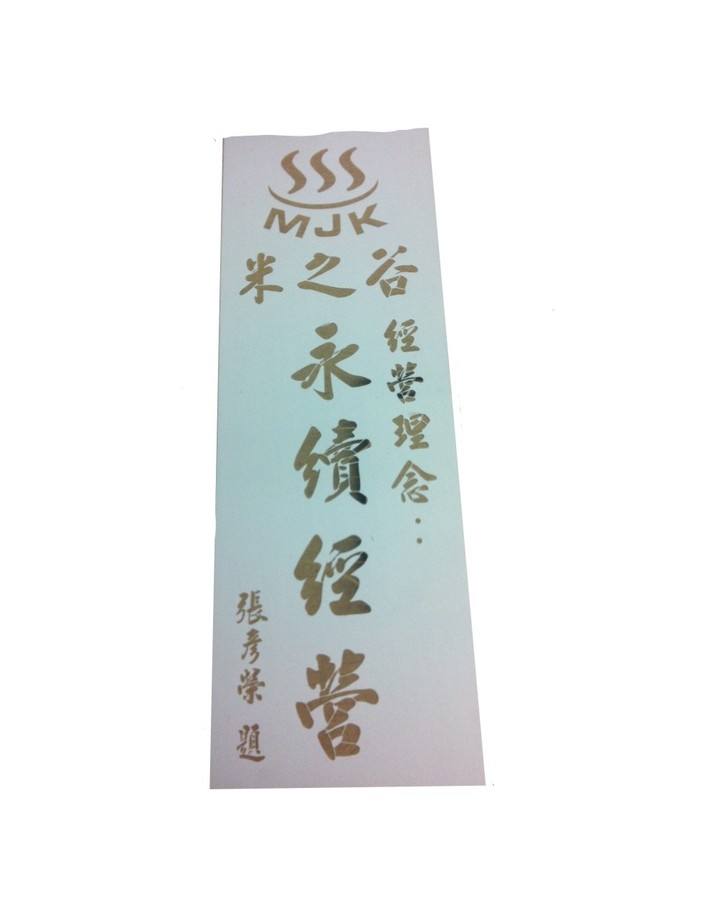 MJK
米之谷
經營理念：
永續經營
張彥榮 題